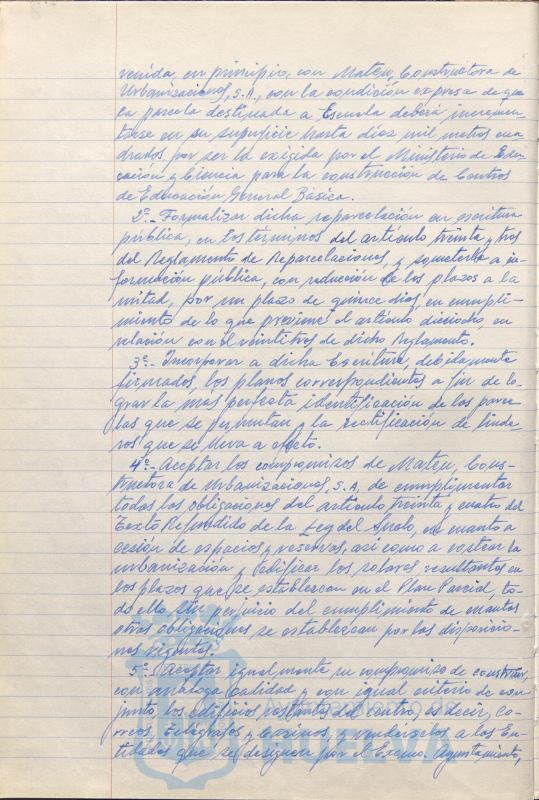 venida, en principio, con Mateu, Constructora de
Urbanizaciones, S.A., con la condición expresa de que
la parcela destinada a Escuela deberá incremen-
tarse en su superficie hasta diez mil metros cua
drados, por ser la exigida por el Ministerio de Edu-
cación y Ciencia para la construcción de Centros
de Educación General Básica.
2º.- Formalizar dicha reparcelación en escritura
pública, en los términos del artículo treinta y tres
del Reglamento de Reparcelaciones, y someterla a in-
formación pública, con reducción de los plazos a la
mitad, por un plazo de quince días, en cumpli-
miento de lo que previene el artículo dieciocho, en
relación con el veintitres de dicho Reglamento.
3º.- Incorporar a dicha Escritura, debidamente
firmados, los planos correspondientes a fin de lo-
grar la más perfecta identificación de las parce
las que se permutan y la rectificación de linde
ros que se lleva a efecto.
4º.- Aceptar los compromisos de Mateu, Cons-
tructora de Urbanizaciones, S.A, de cumplimentar
todas las obligaciones del artículo treinta y cuatro del
Texto Refundido de la Ley del Suelo, en cuanto a
cesión de espacios y reservas, así como a costear la
urbanización y edificar los solares resultantes en
los plazos que se establezcan en el Plan Parcial, to-
do ello sin perjuicio del cumplimiento de cuantas
otras obligaciones se establezcan por las disposicio-
nes vigentes.
5º.- Aceptar igualmente su compromiso de construir,
con análoga calidad y con igual criterio de con
junto, los edificios restantes del centro, es decir, Co-
rreos, Telégrafos y Casinos, y venderselos a las En-
tidades que se designen por el Excmo. Ayuntamiento,